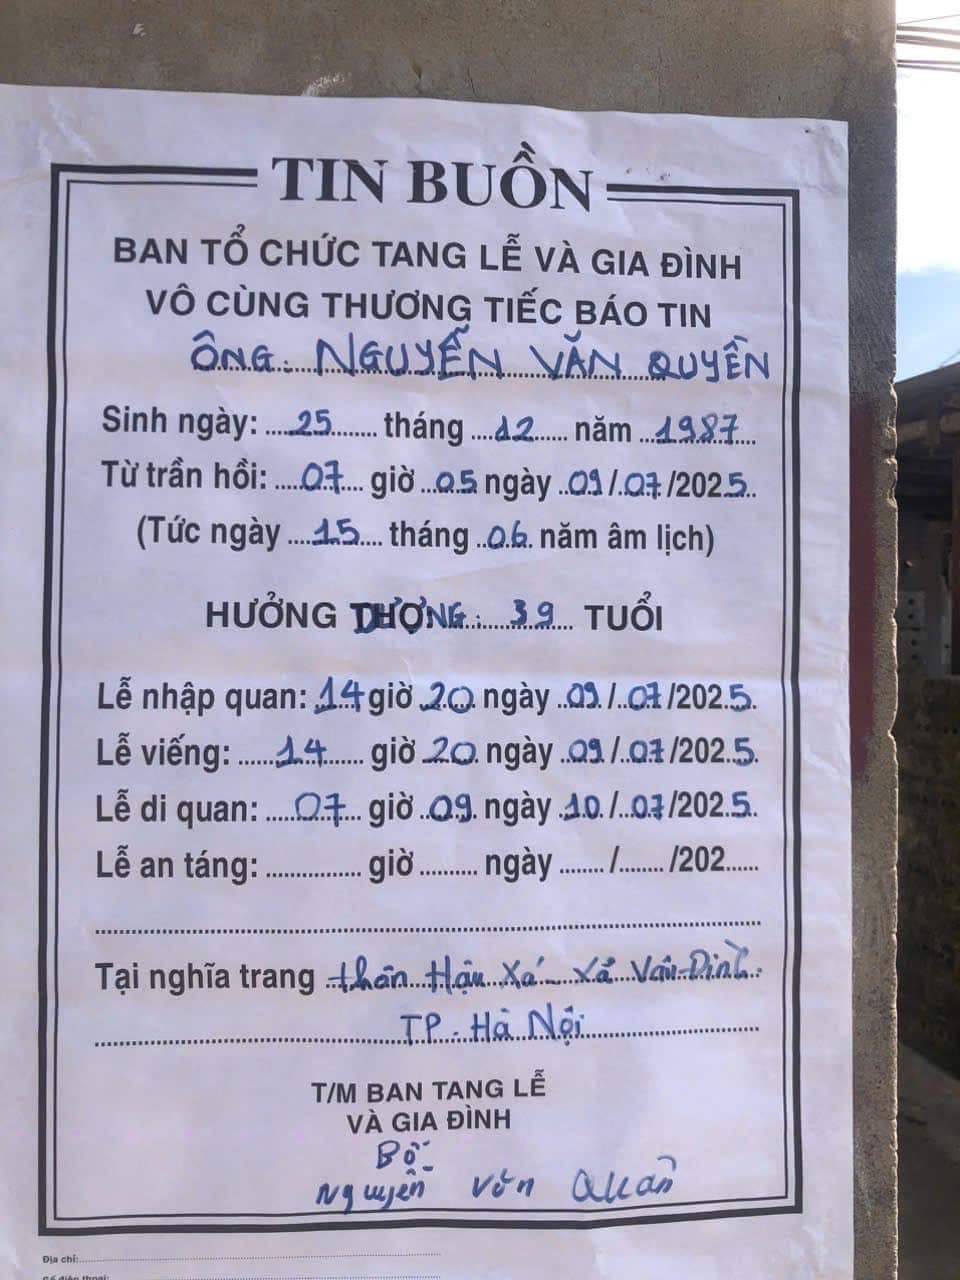 TIN BUỒN
BAN TỔ CHỨC TANG LỄ VÀ GIA ĐÌNH
VÔ CÙNG THƯƠNG TIẾC BÁO TIN
ÔNG: NGUYỄN VĂN QUYỀN
Sinh ngày: 25 tháng 12 năm 1987
Từ trần hồi: 07 giờ 05 ngày 09/07/2025
(Tức ngày 15 tháng 06 năm âm lịch)
HƯỞNG DƯƠNG: 39 TUỔI
Lễ nhập quan: 14 giờ 20 ngày 09/07/2025
Lễ viếng: 14 giờ 20 ngày 09/07/2025
Lễ di quan: 07 giờ 09 ngày 10/07/2025
Lễ an táng: giờ ngày / /202
Tại nghĩa trang thôn Hậu Xá - Xã Vân Đình
TP. Hà Nội
T/M BAN TANG LỄ
VÀ GIA ĐÌNH
Bố
Nguyễn Văn
Địa chỉ:
Số điện thoại: